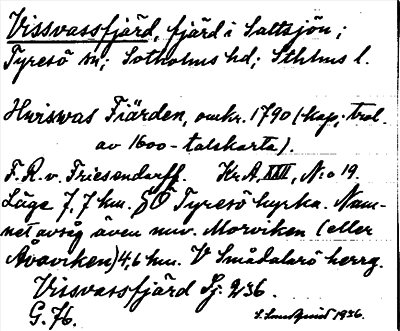 Vissvassfjärd, fjärd i Saltsjön;
Tyresö sn; Sotholms hd; Sthlms l.
Hwiswas Fiärden, omkr. 1790 (kop. trol.
av 1600-talskarta).
F. R. v. Friesendorff. Kr. A. XXII, N:o 19.
Läge 7,7 km. SÖ Tyresö kyrka. Nam-
net avsåg även nuv. Morviken (eller
Åvaviken) 4,6 km. V Smådalarö herrg.
Vissvassfjärd Sj. 236.
G. 76. 1936.